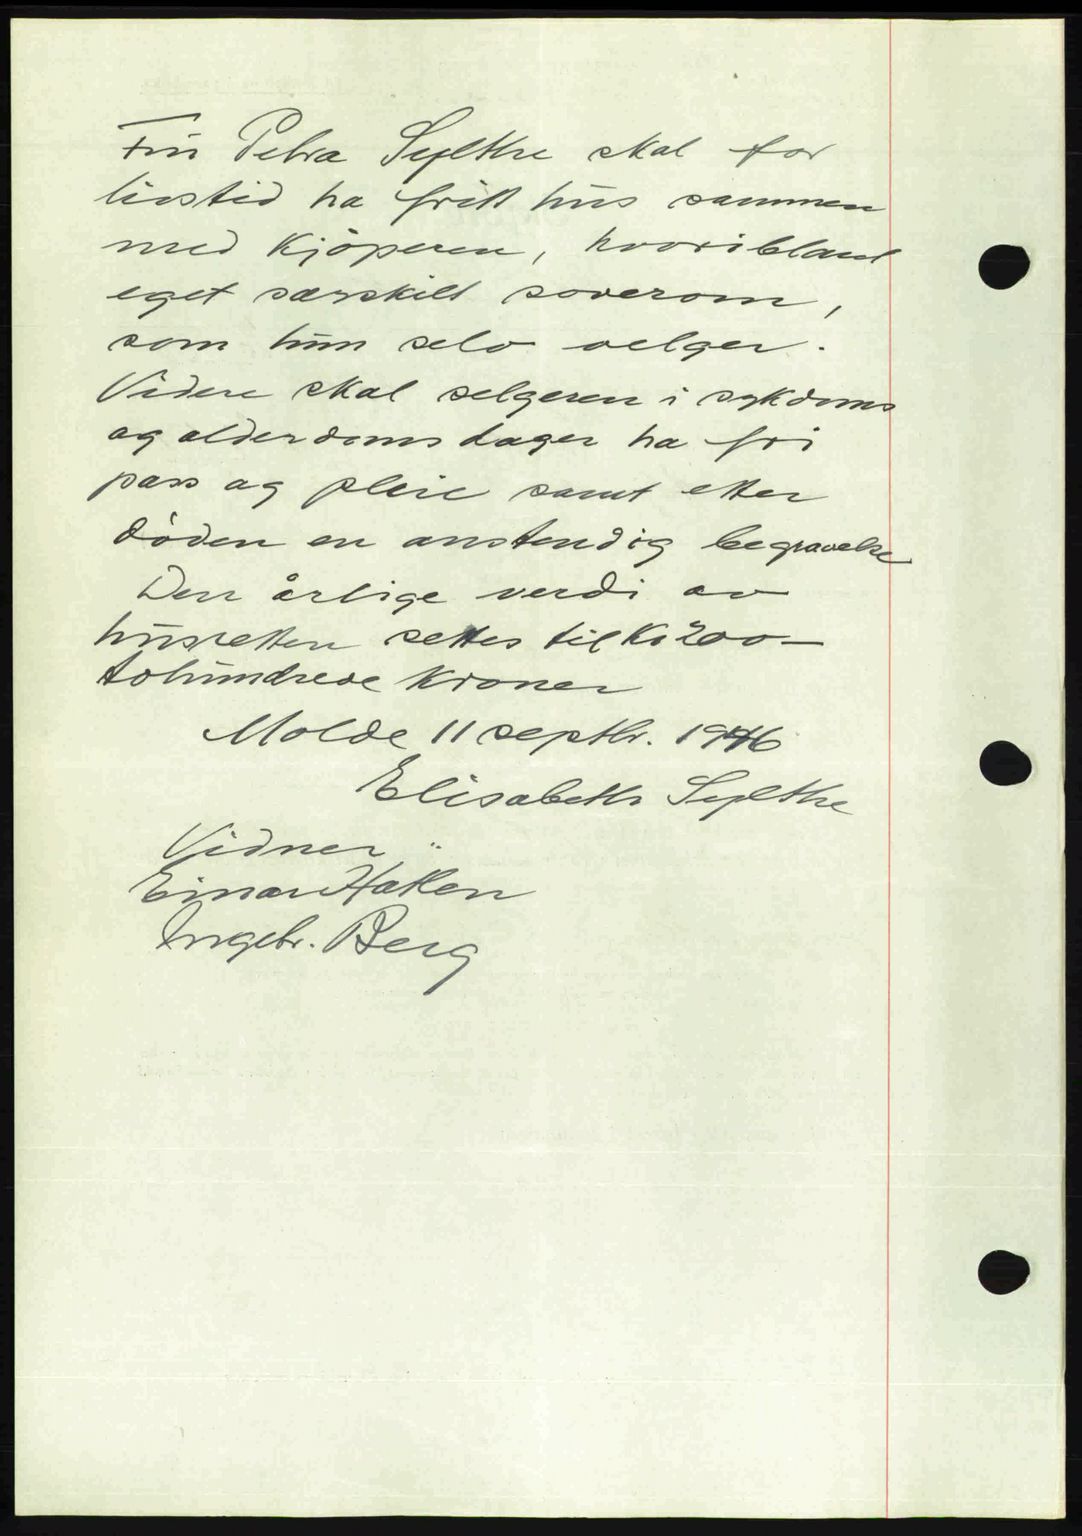 Fru Petra Sylthe skal for
livstid ha fritt hus sammen
med kjöperen, hvoriblant
eget særskilt soverom,
som hun selv velger.
Videre skal selgeren i sykdoms
og alderdoms dager ha fri
pass og pleie samt etter
döden en anstendig begravelse
Den årlige verdi av
husretten settes til Kr 200 —
tohundrede kroner
Molde 11 septbr. 1946
Elisabeth Sylthe
Vidner :
Einar Hatlen
Ingebr. Berg